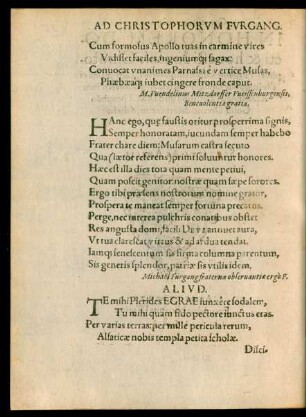 AD CHRISTOPHORVM FVRGANG.
Cum formosus Apollo tuas in carmine vires
Vidisset faciles, ingeniumq; sagax:
Conuocat vnanimes Parnasi è vertice Musas,
Phæbæaq; iubet cingere fronde caput.
M. Vuendelinus Mitzdorffer
Beneuolentiæ gratia.
HAnc ego, quæ faustis oritur prosperrima signis,
Semper honoratam, iucundam semper habebo
Frater chare diem: Musarum castra secuto
Qua (lætor referens) primi soluuntur honores.
Hæc est illa dies tota quam mente petiui,
Quam poscit genitor: nostræ quam sæpe sorores.
Ergo tibi præsens nostrorum nomine grator,
Prospera te maneat semper fortuna precatos.
Perge, nec interea pulchris conatibus obstet
Res angusta domi, facili DEVS annuet aura,
Vt tua clarescat virtus & ad ardua tendat.
Iamq; senescentum sis firma columna parentum,
Sis generis splendor, patriæ sis vtilis idem.
Michaël Furgang fraternæ obseruantiæ ergò F.
ALIVD.
TE mihi Pierides EGRAE iunxêre sodalem,
Tu mihi quàm fido pectore iunctus eras.
Per varias terras: per mille pericula rerum,
Alsaticæ nobis templa petita scholæ.
Disci-